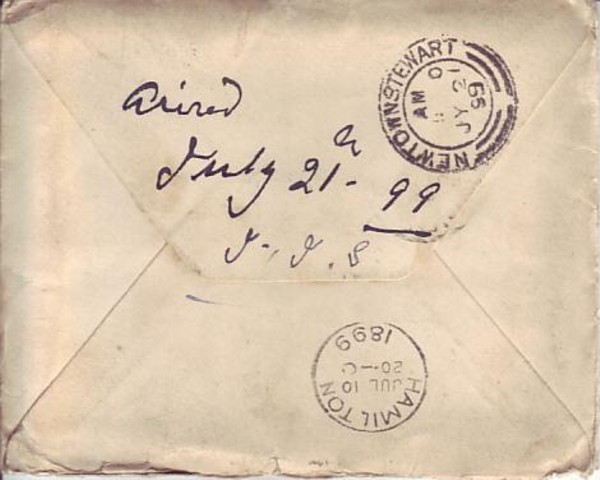 arived
July 21st 99
J. J. S
NEWTOWNSTEWART
AM
JY 21
99
HAMILTON
JUL 10
20—0
1899